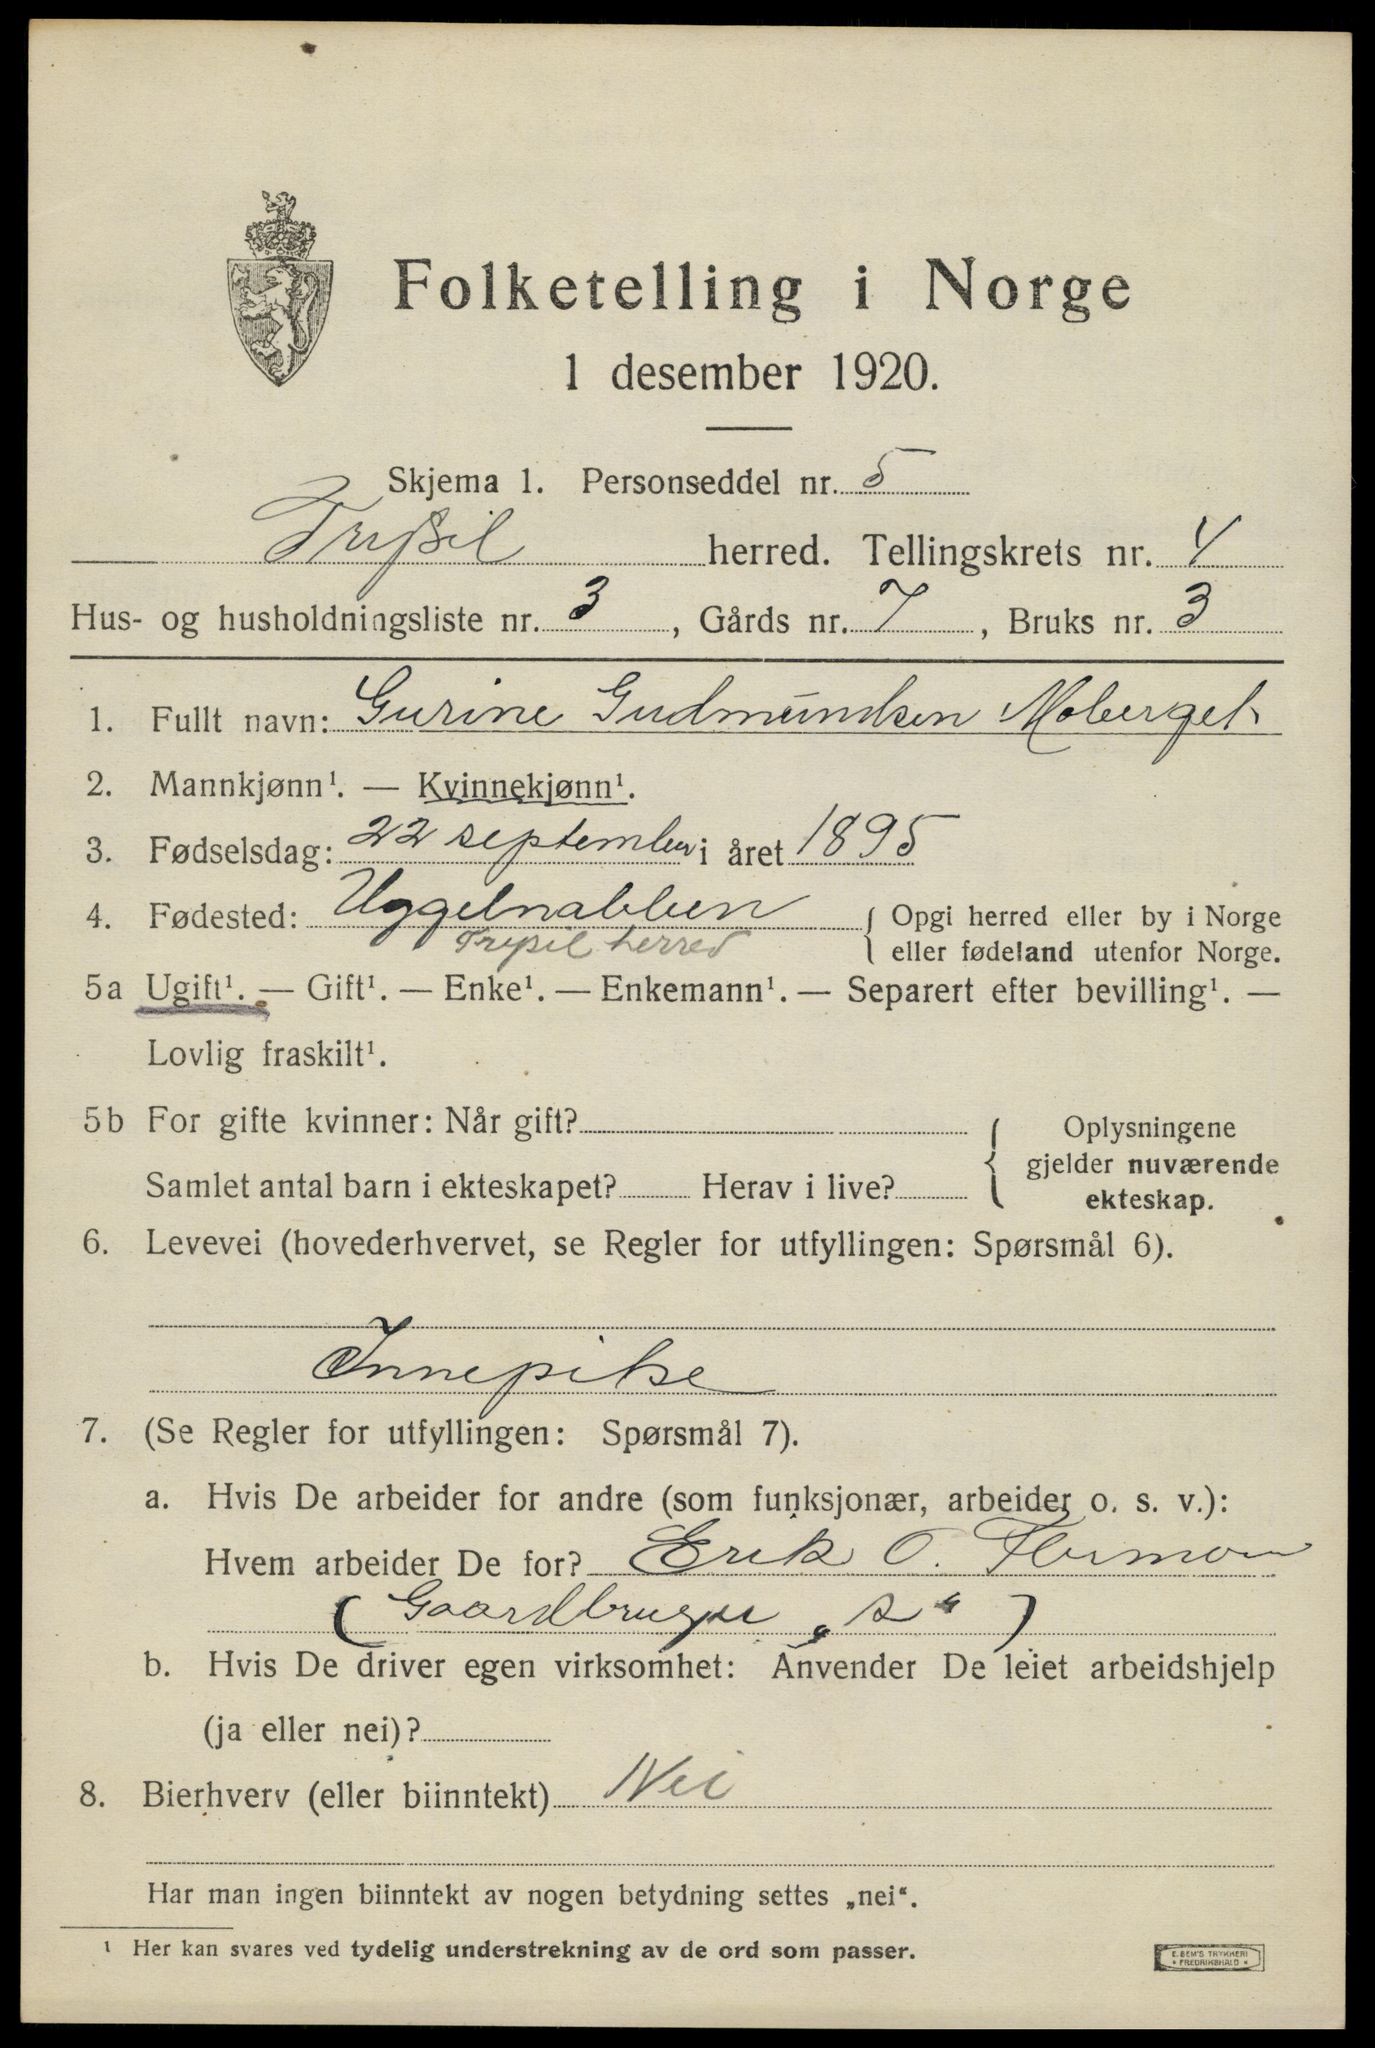 Folketelling i Norge
1 desember 1920.
Skjema 1. Personseddel nr. 5
Trysil herred. Tellingskrets nr. 4
Hus- og husholdningsliste nr. 3, Gårds nr. 7, Bruks nr. 3
1. Fullt navn: Gurine Gudmundsen Moberget
2. Mannkjønn¹. — Kvinnekjønn¹.
3. Fødselsdag: 22 september i året 1895
4. Fødested: Uggelnabben { Opgi herred eller by i Norge
Trysil herred { eller fødeland utenfor Norge.
5a Ugift¹. — Gift¹. — Enke¹. — Enkemann¹. — Separert efter bevilling¹. —
Lovlig fraskilt¹.
5b For gifte kvinner: Når gift? { Oplysningene
gjelder nuværende
Samlet antal barn i ekteskapet? Herav i live? ekteskap.
6. Levevei (hovederhvervet, se Regler for utfyllingen: Spørsmål 6).
Innepike
7. (Se Regler for utfyllingen: Spørsmål 7).
a. Hvis De arbeider for andre (som funksjonær, arbeider o. s. v.):
Hvem arbeider De for? Erik O. Flermoen
( Gaardbruger „s“ )
b. Hvis De driver egen virksomhet: Anvender De leiet arbeidshjelp
(ja eller nei)?
8. Bierhverv (eller biinntekt) Nei
Har man ingen biinntekt av nogen betydning settes „nei“.
¹ Her kan svares ved tydelig understrekning av de ord som passer.
E. BEM'S TRYKKERI
* FREDRIKSHALD *